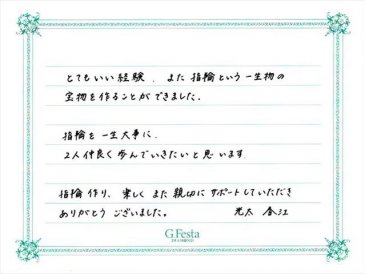 とてもいい経験、また指輪という一生物の
宝物を作ることができました。
指輪を一生大事に、
2人仲良く歩んでいきたいと思います
指輪作り、楽しくまた親切にサポートしていただき
ありがとうございました。 光太 春江
G.Festa